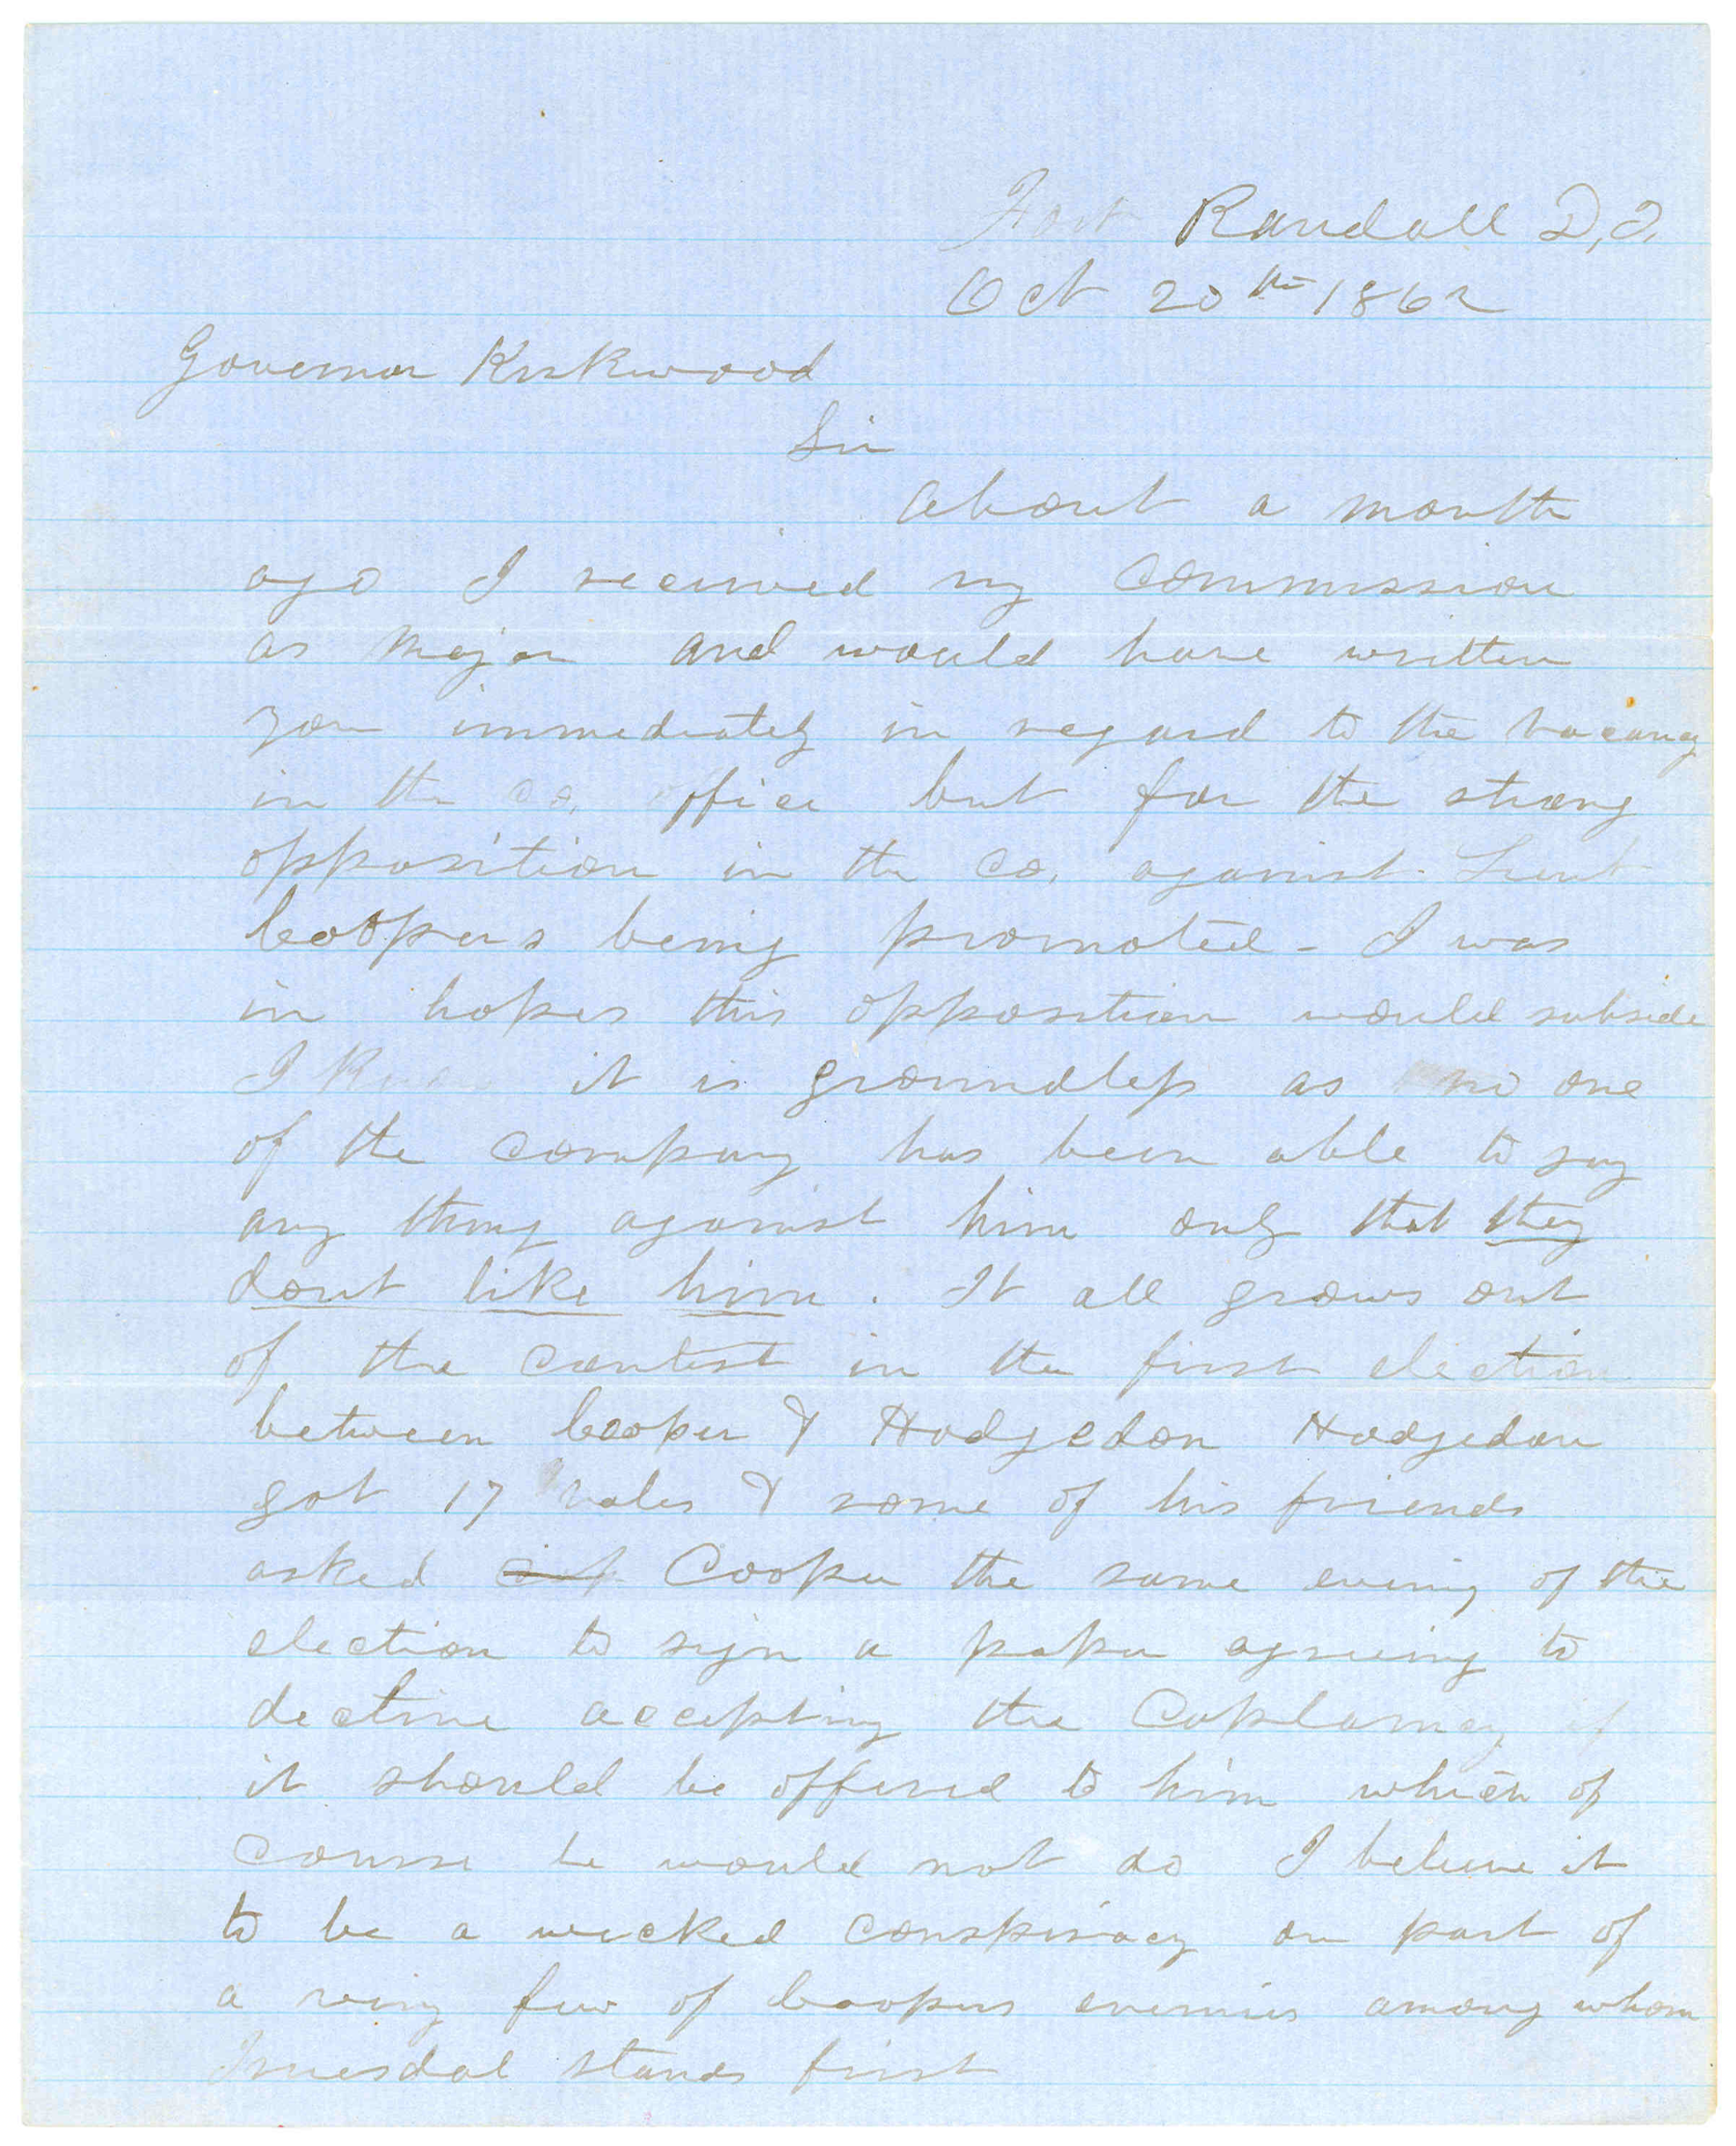 Fort Randall D,T,
Oct 20th 1862
Governor Kirkwood
Sir
About a month
ago I received my commission
as Major and would have written
you immediately in regard to the vacancy
in the co, office but for the strong
opposition in the co, against Lieut
Coopers being promoted - I was
in hopes this opposition would subside
I Know it is groundless as no one
of the company has been able to say
any thing against him only that they
dont like him. It all grows out
of the contest in the first election
between Cooper & Hodgedon Hodgedon
got 17 votes & some of his friends
asked Cooper the same evening of the
election to sign a paper agreeing to
decline accepting the Captaincy if
it should be offered to him which of
course he would not do I believe it
to be a wicked conspiracy on part of
a very few of Coopers enemies among whom
Truesdal stands first